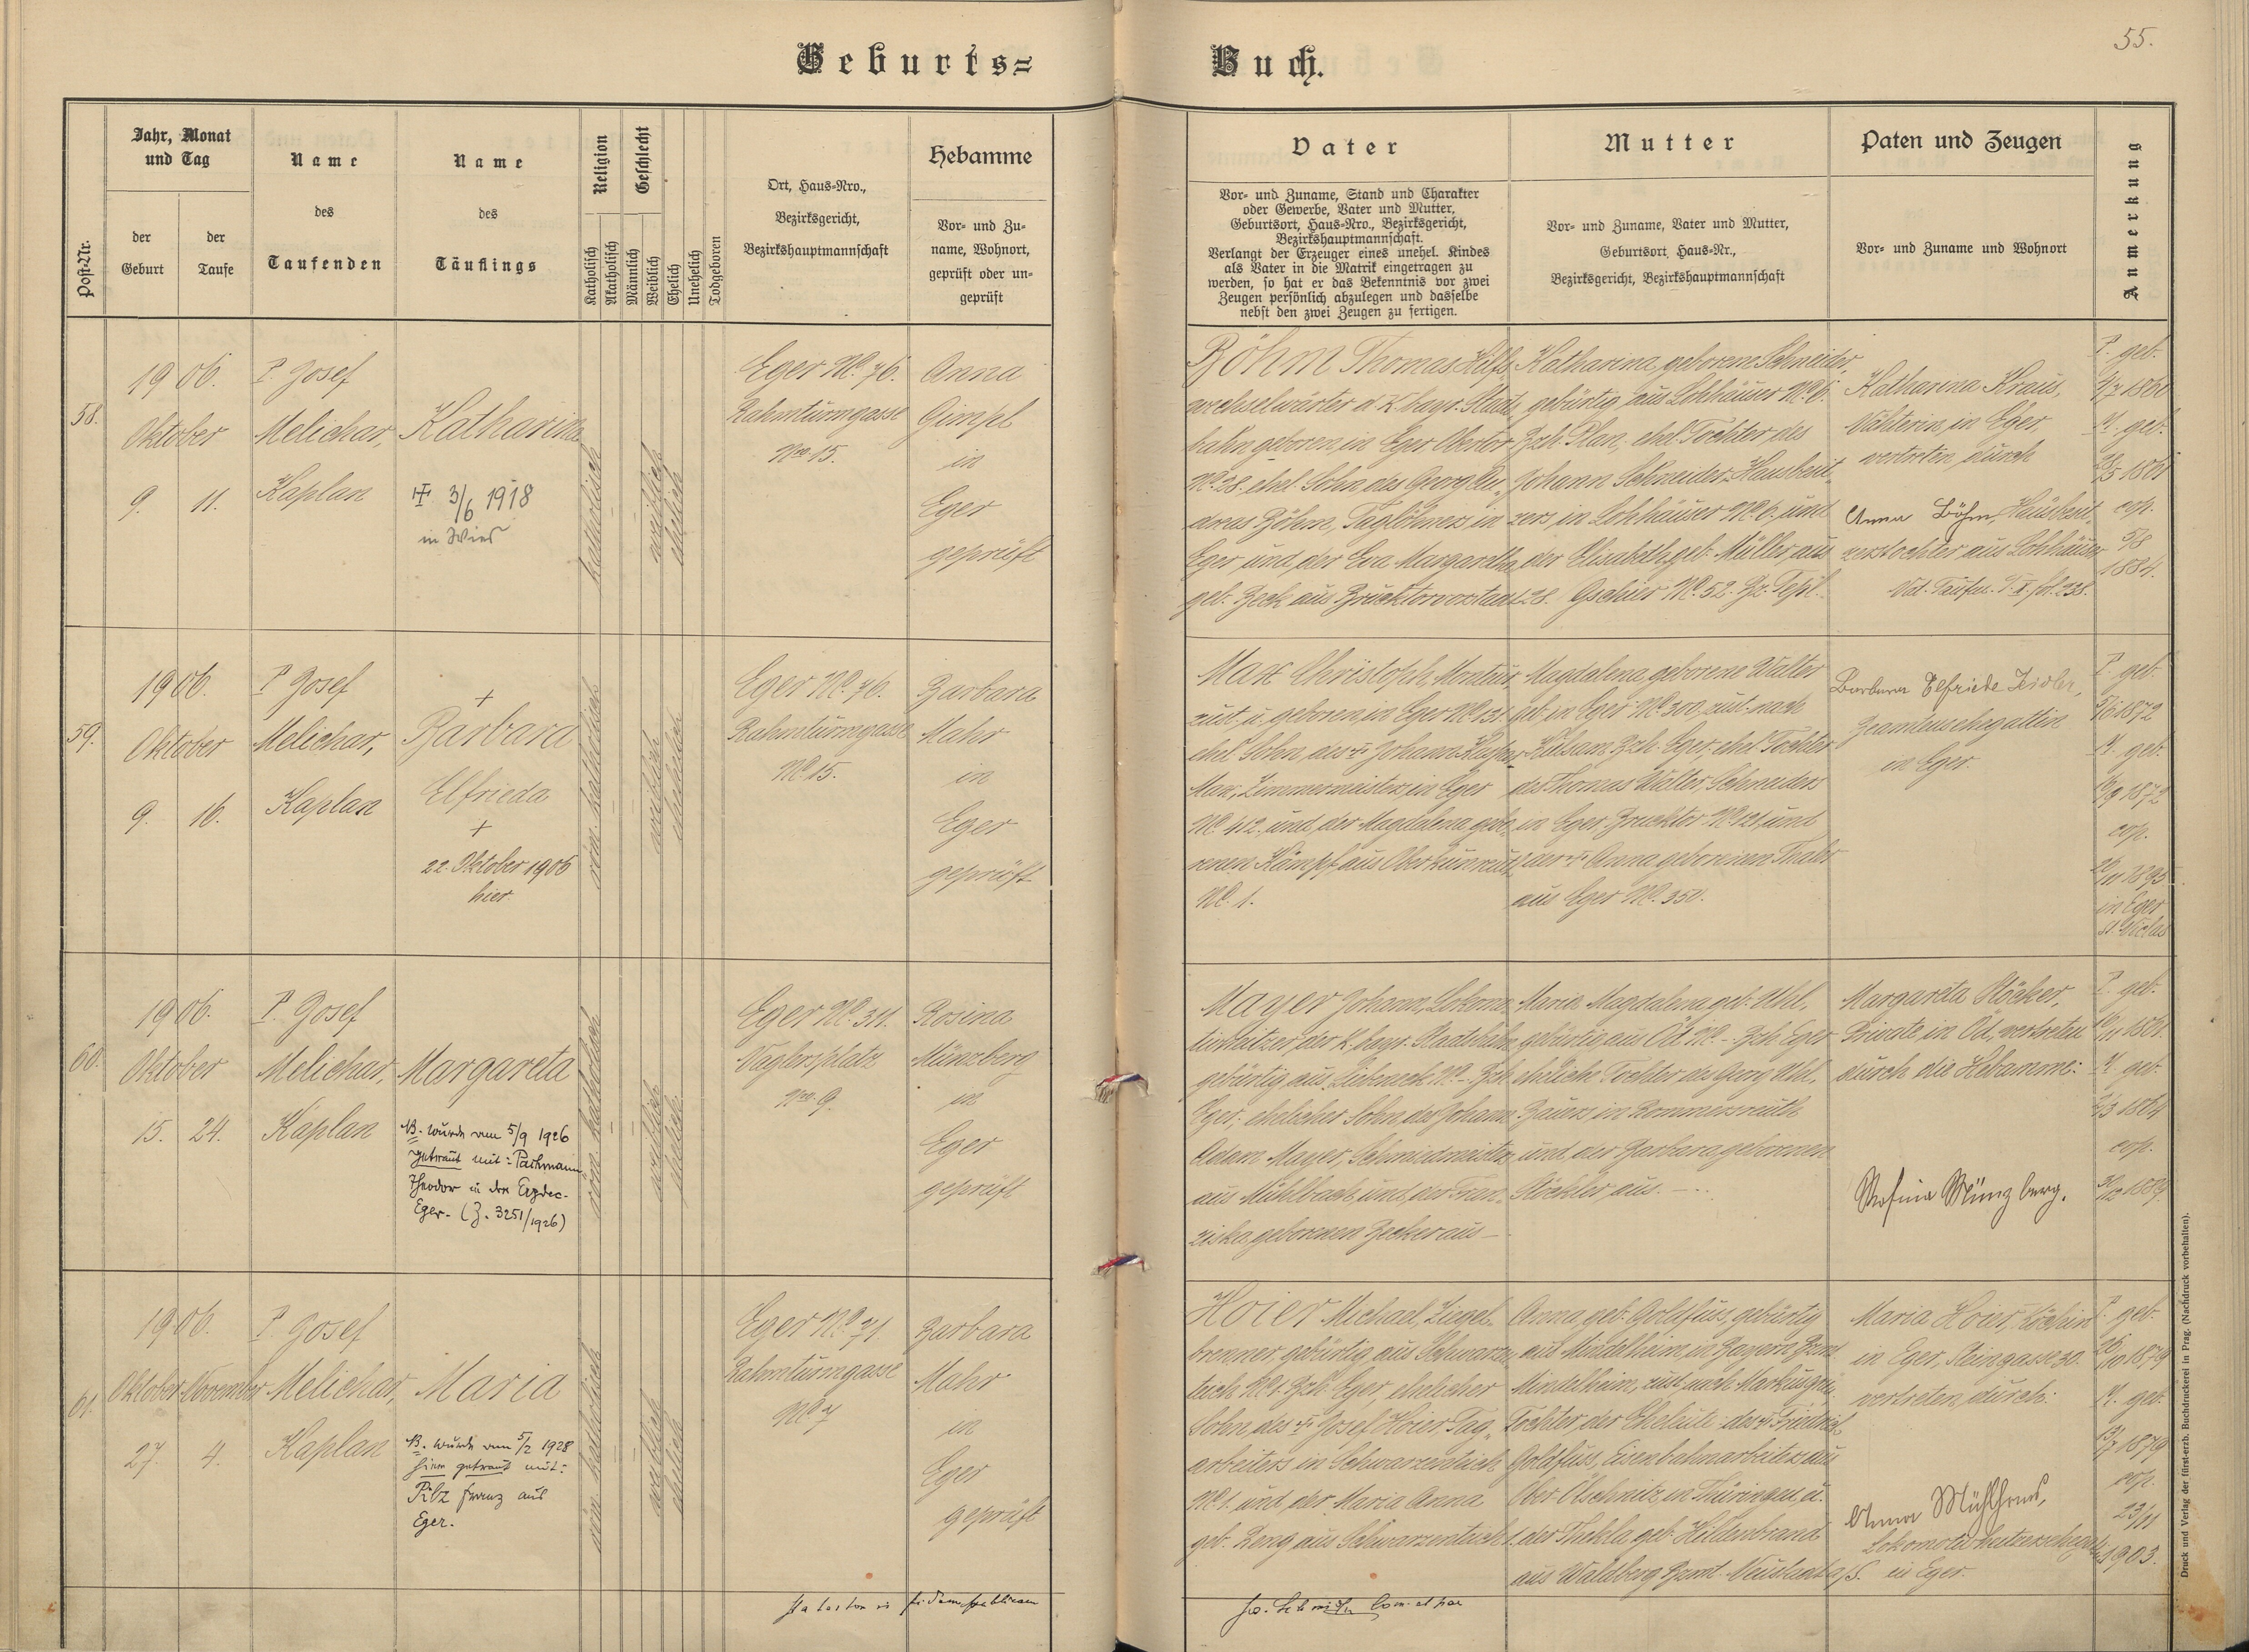 55.
Geburts=
Buch.
Post-Nr.
Jahr, Monat
und Tag
der
Geburt
der
Taufe
Name
des
Taufenden
Name
des
Täuflings
Religion
Katholisch
Akatholisch
Geschlecht
Männlich
Weiblich
Ehelich
Unehelich
Todgeboren
Ort, Haus-Nro.,
Bezirksgericht,
Bezirkshauptmannschaft
Hebamme
Vor- und Zu-
name, Wohnort,
geprüft oder un-
geprüft
Vater
Vor- und Zuname, Stand und Charakter
oder Gewerbe, Vater und Mutter,
Geburtsort, Haus-Nro., Bezirksgericht,
Bezirkshauptmannschaft.
Verlangt der Erzeuger eines unehel. Kindes
als Vater in die Matrik eingetragen zu
werden, so hat er das Bekenntnis vor zwei
Zeugen persönlich abzulegen und dasselbe
nebst den zwei Zeugen zu fertigen.
Mutter
Vor- und Zuname, Vater und Mutter,
Geburtsort, Haus-Nr.,
Bezirksgericht, Bezirkshauptmannschaft
Paten und Zeugen
Vor- und Zuname und Wohnort
Anmerkung
58.
1906.
Oktober
9. 11.
P. Josef
Melichar,
Kaplan
Katharina
3/6 1918
in Wies
katholisch
weiblich
ehelich
Eger No. 76.
Rahmturmgasse
Nro. 15.
Anna
Gimpl
in
Eger
geprüft
Böhm Thomas Hilfs-
wechselwärter d. k. bayr. Staats-
bahn geboren in Eger Obertor
No. 28. ehel. Sohn des Georg An-
dreas Böhm, Taglöhners in
Eger und der Eva Margaretha
geb. Zeck aus Brucktorvorstadt 28.
Katharina geborene Schneider,
gebürtig aus Lohhäuser No. 6.
Bzh. Plan, ehel. Tochter des
Johann Schneider, Hausbesit-
zers in Lohhäuser No. 6, und
der Elisabeth geb. Müller aus
Gschier No. 52. Bz. Tepl.
Katharina Kraus,
Nähterin in Eger
vertreten durch
Anna Böhm, Hausbesit-
zerstochter aus Lohhäuser
V. geb.
M. geb.
cop.
5/8
1884.
59.
1906.
Oktober
9. 16.
P. Josef
Melichar,
Kaplan
+
Barbara
Elfrieda
+
22. Oktober 1906
hier.
röm. katholisch
weiblich
ehelich
Eger No. 76.
Rahmturmgasse
No. 15.
Barbara
Mahr
in
Eger
geprüft
Max Christoph, Monteur,
zust. u. geboren in Eger No. 131.
Max, Zimmermeisters in Eger
No. 412. und der Magdalena gebo-
renen Kämpf aus Oberkunreuth
No. 1.
Magdalena geborene Walter
geb. in Eger No. 300, zust. nach
Bzh. Eger, ehel. Tochter
des Thomas Walter, Schneiders
in Eger Brucktor No. 121, und
der + Anna geborenen Thaler
aus Eger No. 350.
Barbara Elfriede Zeidler,
Beamtensehegattin
in Eger.
V. geb.
5/6 1872
M. geb.
cop.
in Eger
St. Niclas
60.
1906.
Oktober
15. 24.
P. Josef
Melichar,
Kaplan
Margareta
NB. wurde am 5/9 1926
getraut mit: Pachmann
Theodor in der Erzdec.
Eger. (Z. 3251/1926)
röm. katholisch
weiblich
ehelich
Eger No. 311.
Naglersplatz
Nro. 9.
Rosina
Münzberg
in
Eger
geprüft
Mayer Johann, Lokomo-
tivheitzer der k. bayr. Staatsbahn
gebürtig aus Liebeneck No. – Bzh
Eger, ehelicher Sohn des Johann
Adam Mayer, Schmiedmeisters
aus Mühlbach, und der Fran-
ziska geborenen Zecker aus –
Maria Magdalena geb. Uhl,
gebürtig aus Öd No. – Bzh. Eger
eheliche Tochter des Georg Uhl,
Bauers in Rommersreuth
und der Barbara geborenen
Stöckler aus. –
Margareta Röcker,
Private in Öd, vertreten
durch die Hebamme:
Rosina Münzberg.
V. geb.
M. geb.
cop.
61.
1906.
Oktober November
27. 4.
P. Josef
Melichar,
Kaplan
Maria
NB. wurde am 5/2 1928
hier getraut mit:
Pilz Franz aus
Eger.
röm. katholisch
weiblich
ehelich
Eger No. 71.
Rahmturmgasse
No. 7
Barbara
Mahr
in
Eger
geprüft
Hoier Michael, Ziegel-
brenner, gebürtig aus Schwarzen-
teich No. 1. Bzh. Eger, ehelicher
Sohn des + Josef Hoier, Tag-
arbeiters in Schwarzenteich
No. 1. und der Maria Anna
geb. Zeng aus Schwarzenteich 1.
Anna geb. Goldfuss, gebürtig
aus Mindelheim, in Bayern Bzamt
Mindelheim, zust. nach Markusgrün,
Tochter der Eheleute des + Friedrich
Goldfuss, Eisenbahnarbeiters aus
Ober Ölschnitz in Thüringen, u.
der Thekla geb. Hillenbrand
aus Waldberg Bzamt. Neustadt a/S.
Maria Hoier, Köchin
in Eger, Steingasse 30.
vertreten durch:
Anna Mühlhans,
Lokomotivheitzersehegattin
in Eger.
V. geb.
26/10 1879
M. geb.
13/7 1879
cop.
23/11
1903.
Druck und Verlag der fürst-erzb. Buchdruckerei in Prag. (Nachdruck vorbehalten).